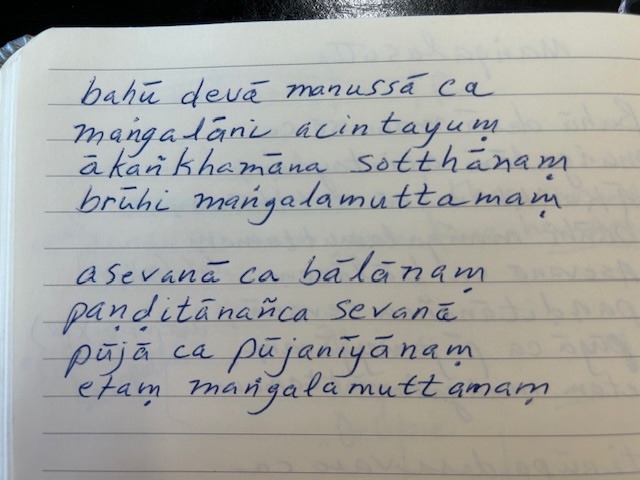 bahū devā manussā ca
maṅgalāni acintayuṃ
ākañkhamāna sotthānaṃ
brūhi maṅgalamuttamaṃ
asevanā ca bālānaṃ
paṇḍitānañca sevanā
pūjā ca pūjanīyānaṃ
etaṃ maṅgalamuttamaṃ